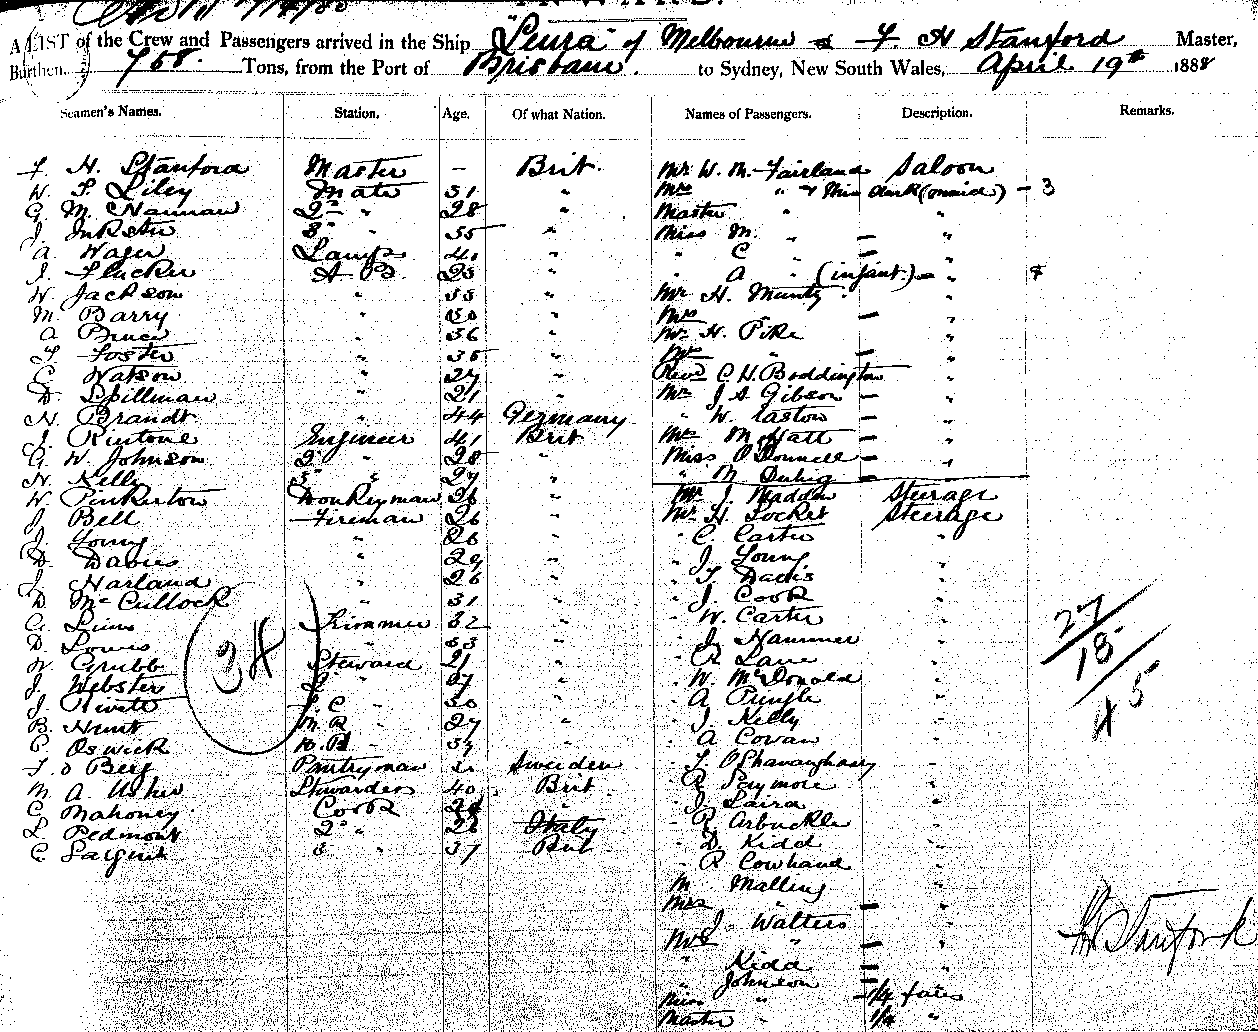 INWARDS.
A LIST of the Crew and Passengers arrived in the Ship "Leura" of Melbourne F H Stanford Master,
Burthen 758. Tons, from the Port of Brisbane. to Sydney, New South Wales, April 19th 1888
Seamen's Names. Station. Age. Of what Nation. Names of Passengers. Description. Remarks.
F. H. Stanford Master - Brit. Mr W. M. Fairland Saloon
W. F. Liley Mate 31 " Mrs " (maid) - 3
G. M. Nauman 2nd " 28 " Master " "
J. Inkster 3rd " 35 " Miss M. " - "
A Wager Lamps 40 " " C - "
J. Flucker A B. 23 " " A " (infant.) - "
W. Jackson " 33 " Mr H. Munty "
M. Barry " " Mrs - "
A Bruce " 36 " Mr H. Pike "
F. Foster " 35 " Mrs " - "
C Watson " 27 " Revd C H. Boddington "
D. Spillman " 21 " Mr J A Gibson - "
N. Brandt " 44 Germany " W. Easton - "
J. Rintone Engineer 41 Brit Mr Moffatt - "
G. W. Johnson 2nd " 28 " Miss O'Donnell - "
N. Kelly 3rd " 27 " " M - "
W. Pinkerton Donkeyman 36 " Mr J. Madden Steerage
J. Bell Fireman 26 " Mr H. Locket Steerage
J. Young " 26 " C. Carter "
D. Davies " 29 " J. Young "
J. Harland " 26 " Davis "
D. McCullock " 31 " J. Cook "
G. Trimmer 32 " W. Carter "
D. Lowis " 33 " J. Hammer "
W. Grubb Steward 21 " R Lane "
J. Webster 2 " " W. McDonald "
J. F. C " 30 " A Pringle "
B. Hunt M R " 27 " J. Kelly "
C. Oswick " " A Cowan "
Berg Pantryman Sweeden "
M. A. Usher Stewardess 40 Brit. R Seymore "
C. Mahoney Cook " J. Laird "
L. Pedmont 2nd " 26 Italy R Arbuckle "
C. Sargent 3 " 37 Brit D. Kidd "
R Cowhand "
M Malling "
Mrs - "
J. Walters "
Mrs " - "
" Kidd - "
" Johnson - "
Miss " - 1/4 fares
Master " 1/4 "
34
27
18
45
F H Stanford